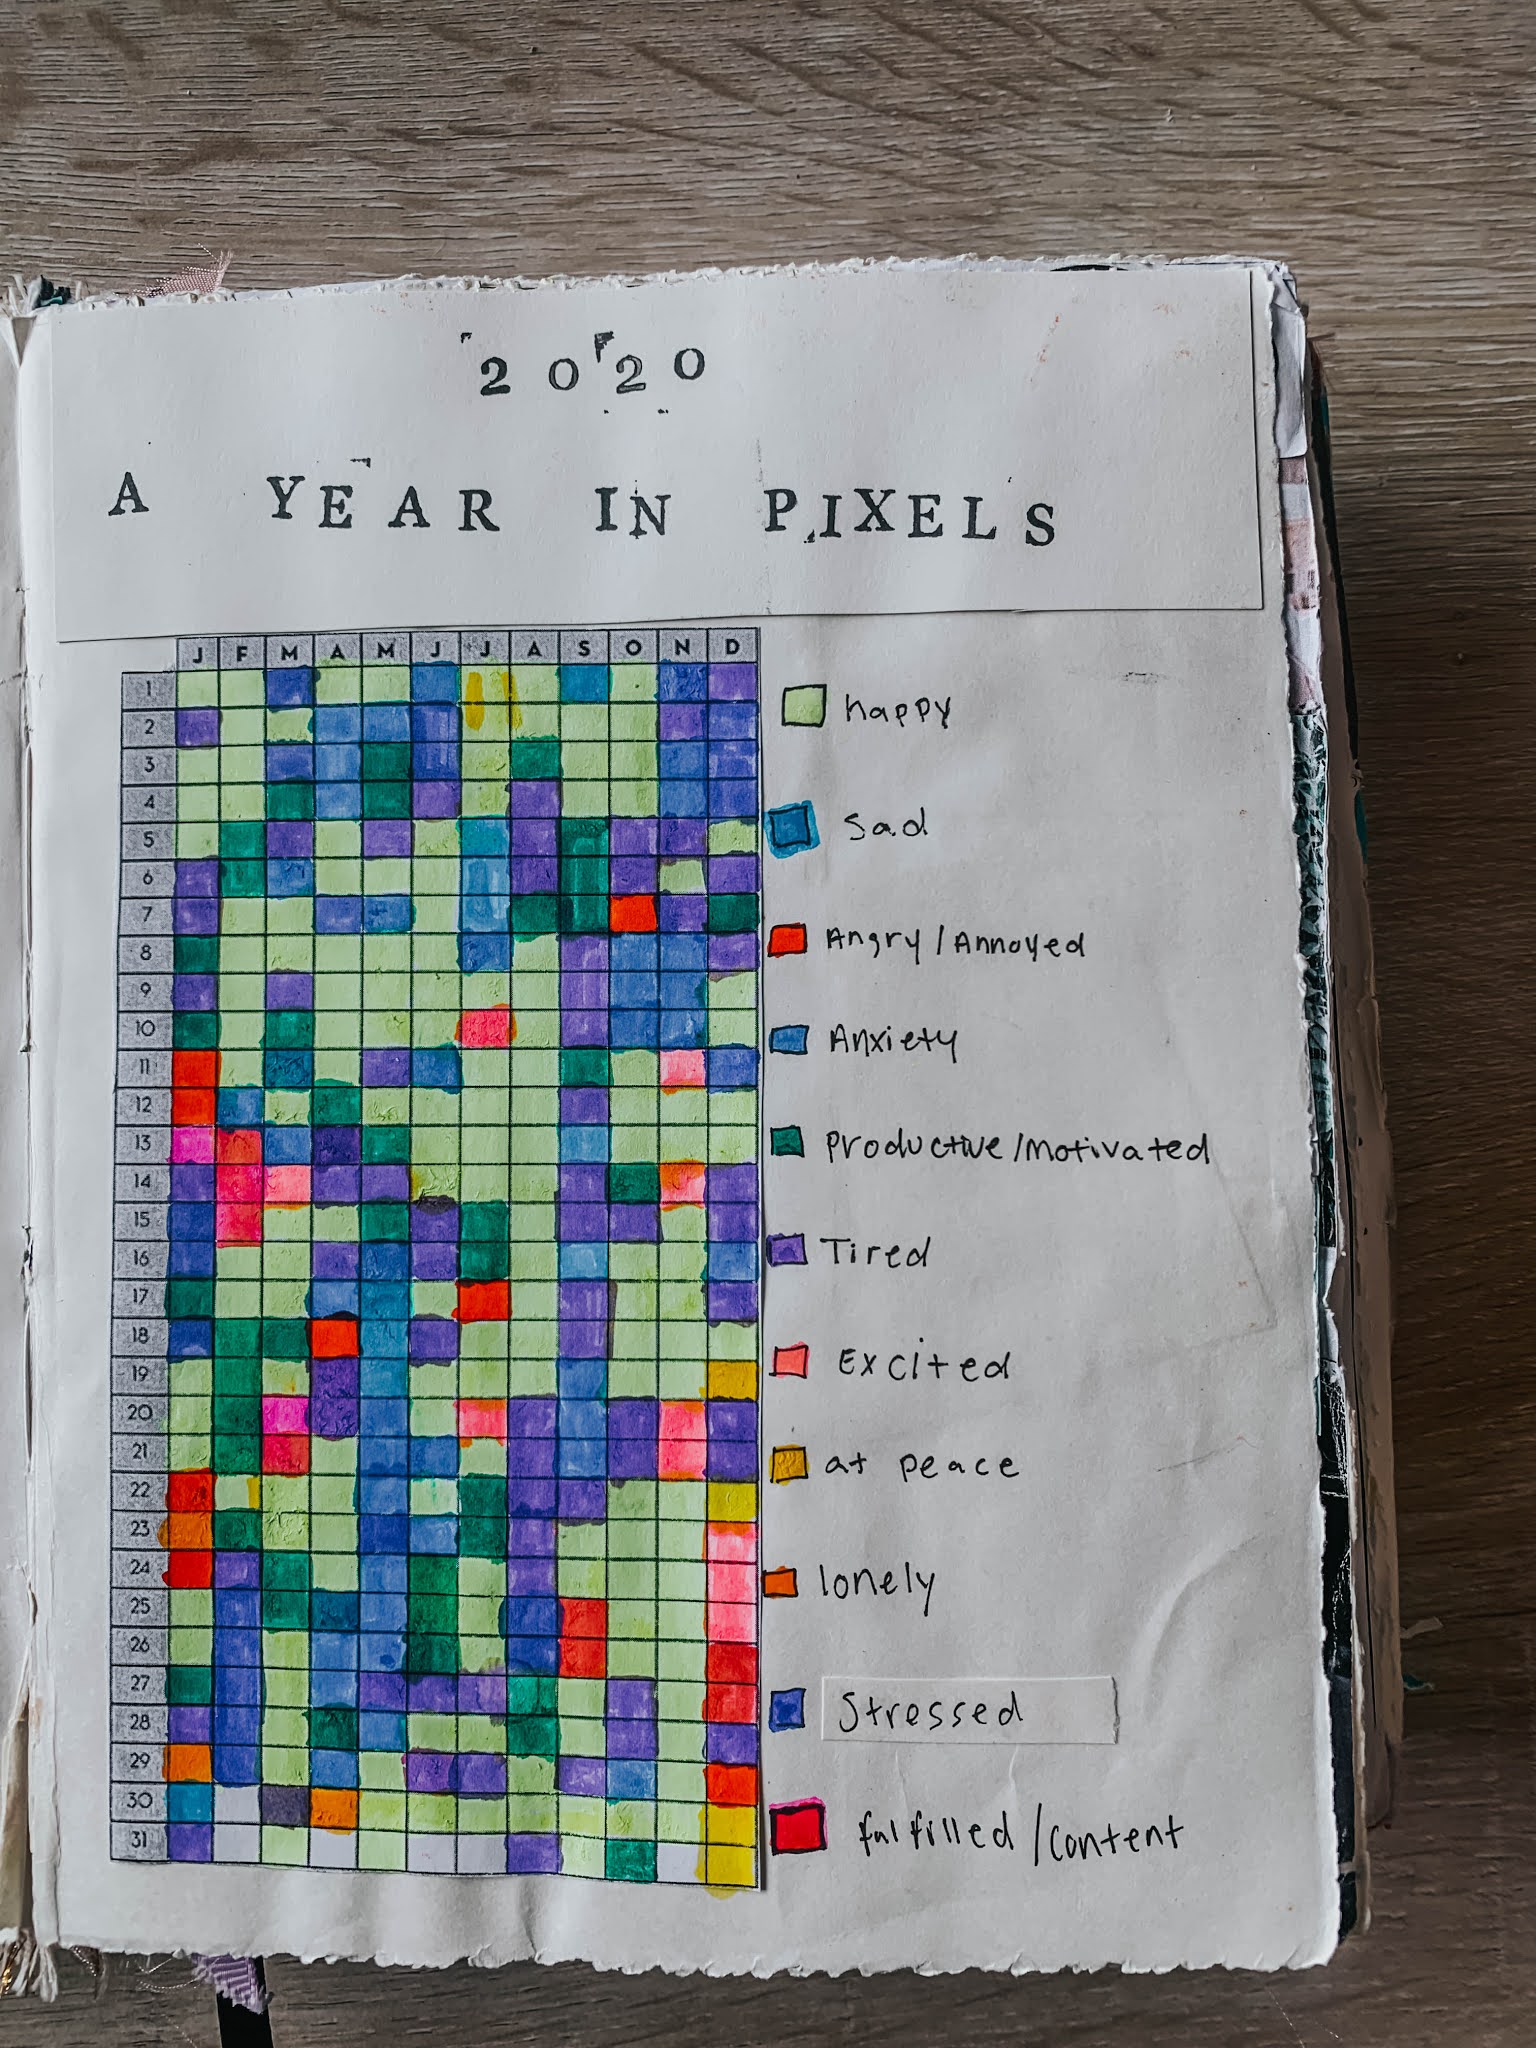 2020
A YEAR IN PIXELS
J F M A M J J A S O N D
1
2
3
4
5
6
7
8
9
10
11
12
13
14
15
16
17
18
19
20
21
22
23
24
25
26
27
28
29
30
31
happy
Sad
Angry/Annoyed
Anxiety
Productive/Motivated
Tired
Excited
at peace
lonely
Stressed
fulfilled/content